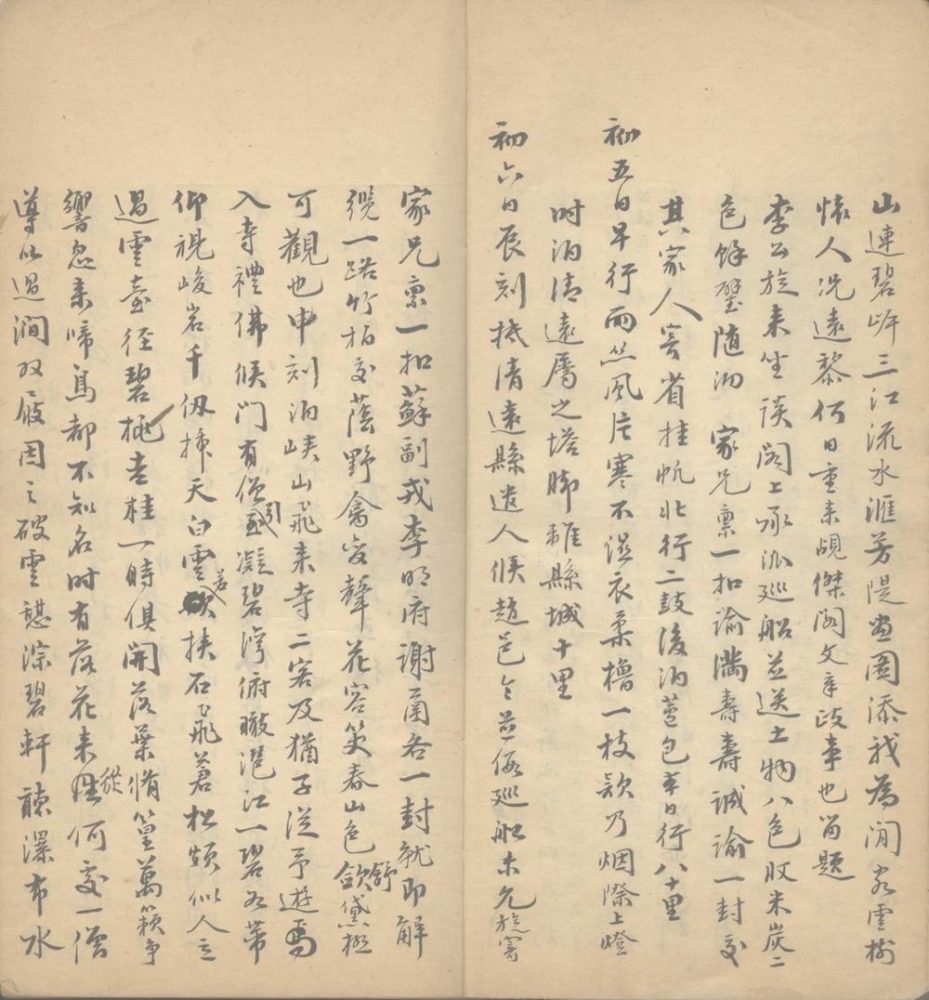 山連碧岸三江流水滙芳隄畫圖添我為閒客雲樹
懷人况遠黎何日重来覘傑閣文章政事也留題
李公旋来坐談閣上承派巡船並送土物八色收米炭二
色餘璧随泐家兄禀一扣諭満壽壽誠諭一封交
其家人寄省挂帆北行二鼓後泊蘆包本日行八十里
初五日早行雨絲風片寒不濕衣柔櫓一枝欵乃烟際上燈
时泊清遠属之塔脚離縣城十里
初六日辰刻抵清遠縣遣人候趙邑令並假巡船未允旋寄
家兄禀一扣蘇副戎李明府谢函各一封就即解
纜一路竹柏交蔭野禽变聲花容笑春山色舒黛極
可觀也申刻泊峡山飛来寺二客及猶子從予遊焉
入寺禮佛候门有僧引凝碧灣俯瞰混江一碧为帶
仰視峻岩千仞插天白雲若挟石飛蒼松頗似人立
過雲臺徑碧桃老桂一時俱開落葉脩篁萬籟争
響忽来啼鳥都不知名时有落花来從何处一僧
導以過澗双屐因之破雲憩淙碧軒聽瀑布水